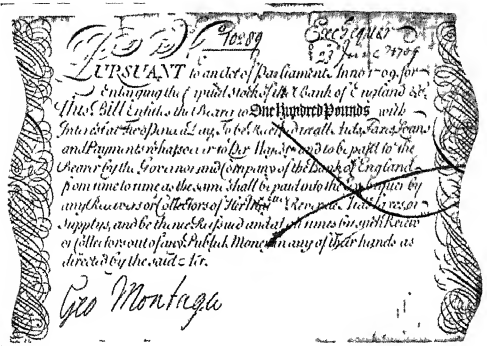 No 10289 Exchequer
23 June 1709
PURSUANT to an Act of Parliament Anno 1709 for
Enlarging the Capital Stock of the Bank of England &c
This Bill Entitles the Bearer to One Hundred Pounds with
Interest at Two Pence a Day To be Received Taxes Loans
and Payments to Her Majty and to be paid to the
Bearer by the Governor and Company of the Bank of England
from time to time as the same Shall be paid into the Exchequer by
any Receivers or Collectors of Her Revenues Taxes or
Supplys, and be thence Reissued and at all times by such Receivrs
or Collectors out of any Publick Moneys in any of their hands as
directed by the said Act.
Geo Montagu